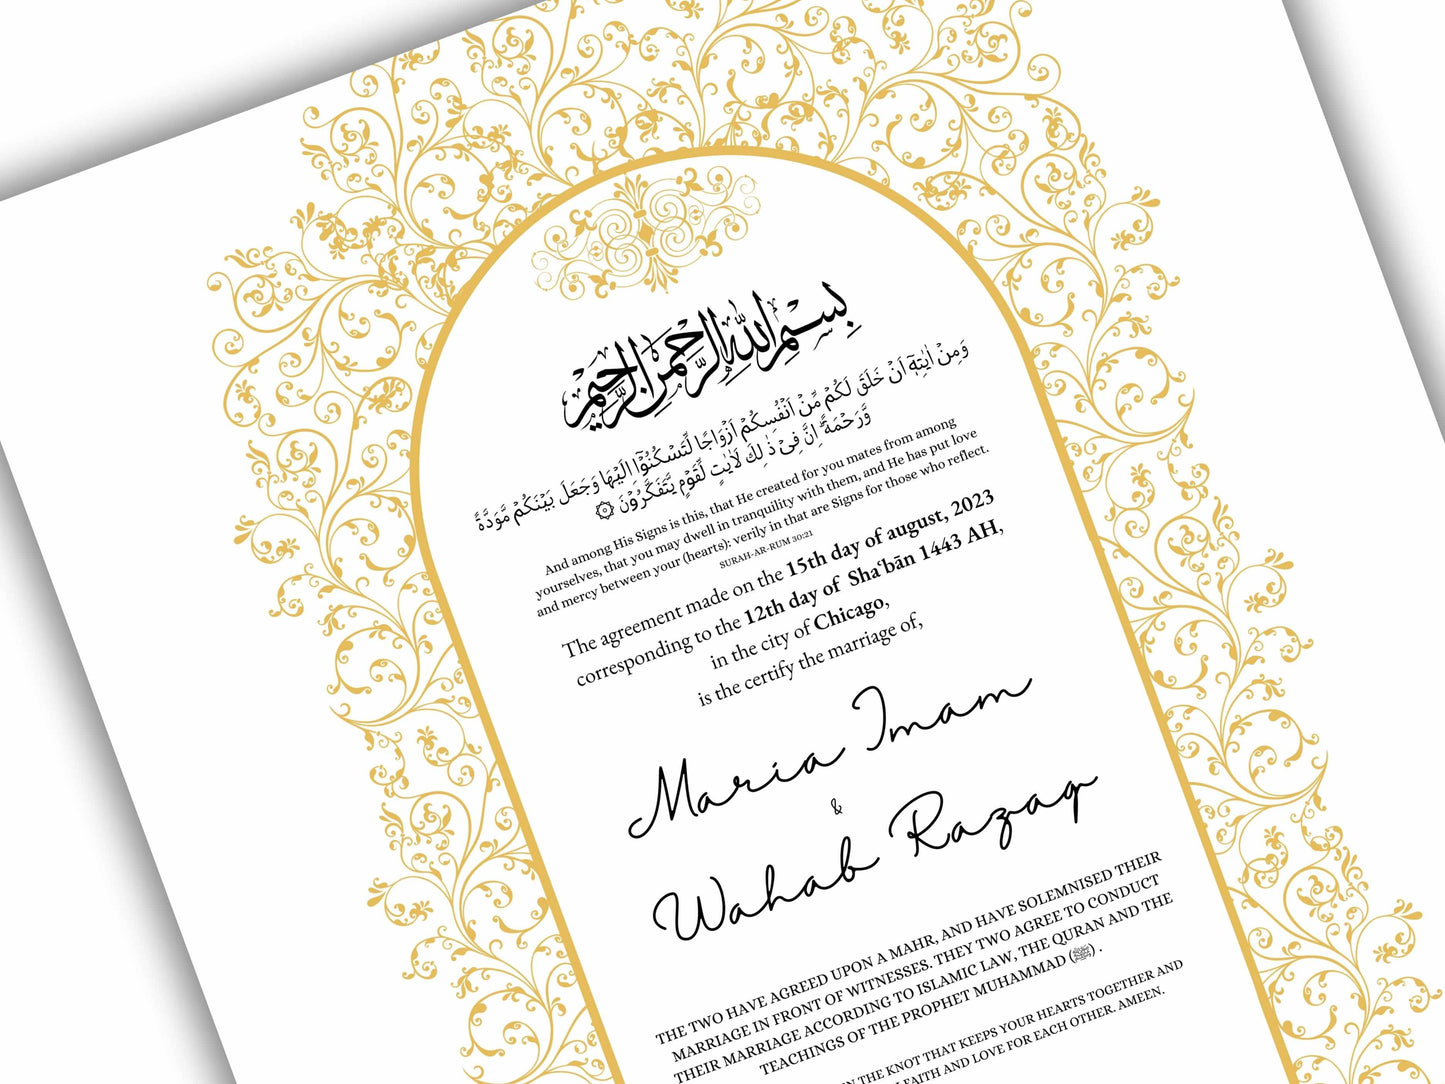 بِسْمِ اللَّهِ الرَّحْمَنِ الرَّحِيمِ
وَمِنْ اٰيٰتِهٖٓ اَنْ خَلَقَ لَكُمْ مِّنْ اَنْفُسِكُمْ اَزْوَاجًا لِّتَسْكُنُوْٓا اِلَيْهَا وَجَعَلَ بَيْنَكُمْ مَّوَدَّةً
وَّرَحْمَةً ۗ اِنَّ فِيْ ذٰلِكَ لَاٰيٰتٍ لِّقَوْمٍ يَّتَفَكَّرُوْنَ
And among His Signs is this, that He created for you mates from among
yourselves, that you may dwell in tranquility with them, and He has put love
and mercy between your (hearts): verily in that are Signs for those who reflect.
SURAH-AR-RUM 30:21
The agreement made on the 15th day of august, 2023
corresponding to the 12th day of Sha‘bān 1443 AH,
in the city of Chicago,
is the certify the marriage of,
Maria Imam
&
Wahab Razaq
THE TWO HAVE AGREED UPON A MAHR, AND HAVE SOLEMNISED THEIR
MARRIAGE IN FRONT OF WITNESSES. THEY TWO AGREE TO CONDUCT
THEIR MARRIAGE ACCORDING TO ISLAMIC LAW, THE QURAN AND THE
TEACHINGS OF THE PROPHET MUHAMMAD (ﷺ) .
THE KNOT THAT KEEPS YOUR HEARTS TOGETHER AND
FAITH AND LOVE FOR EACH OTHER. AMEEN.